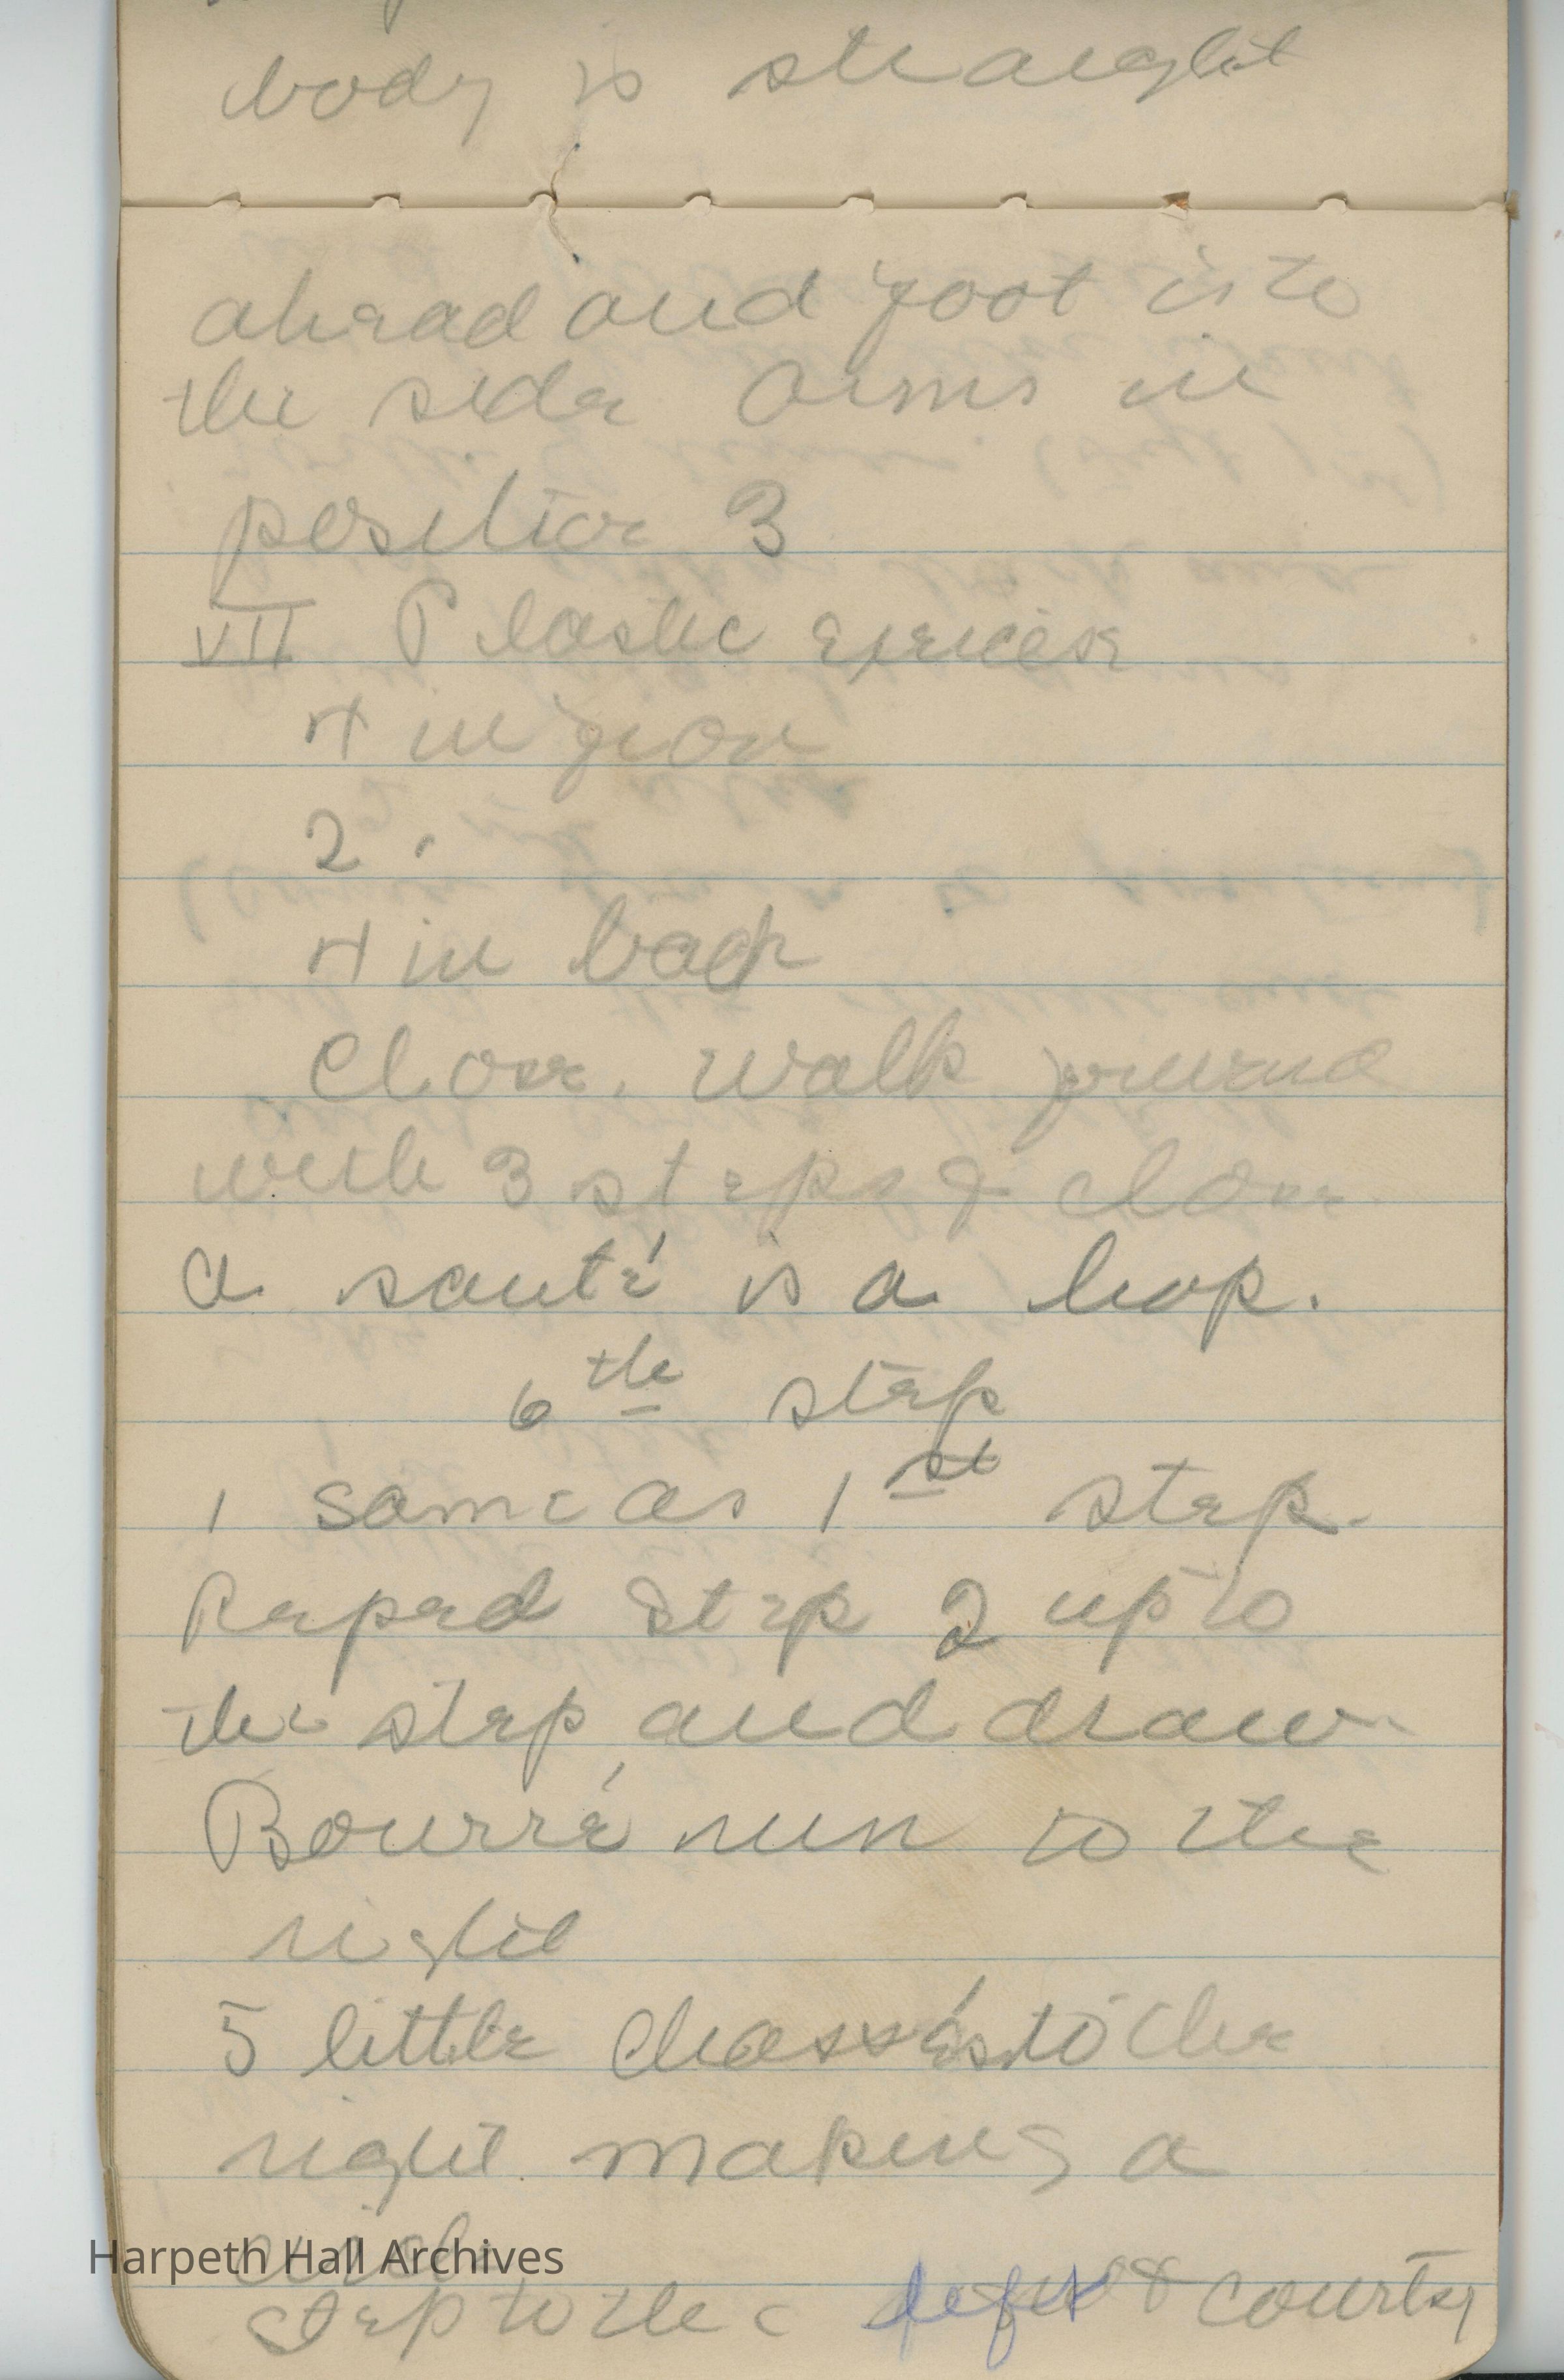 body is straight
ahead and foot is to
the side Arms in
position 3
VII Plastic exercise
4 in fron
2 .
4 in back
Close. Walk forward
with 3 steps & close
a sauté is a hop.
6th step
1 same as 1st step.
Reped Step 2 up to
the step, and draw
Bourré run to the
right
5 little Chassés to the
right making a
circle
Harpeth Hall Archives
Step to the left & courtsy